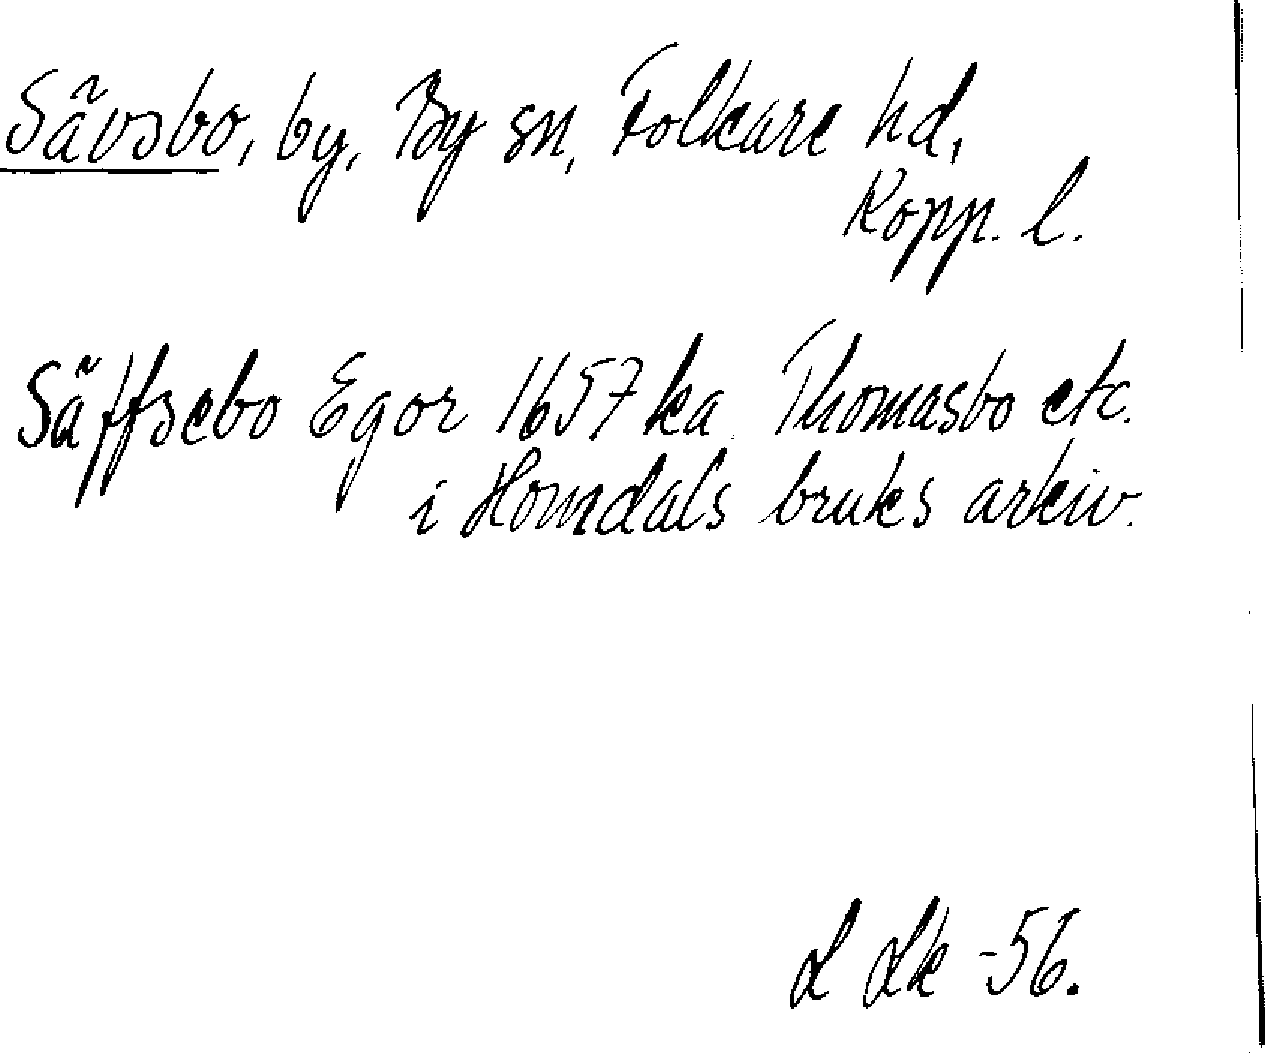 Sävsbo, by, By sn, Folkare hd,
Kopp. l.
Säffsebo Egor 1657 ka Thomasbo etc.
i Horndals bruks arkiv.
L Lk -56.